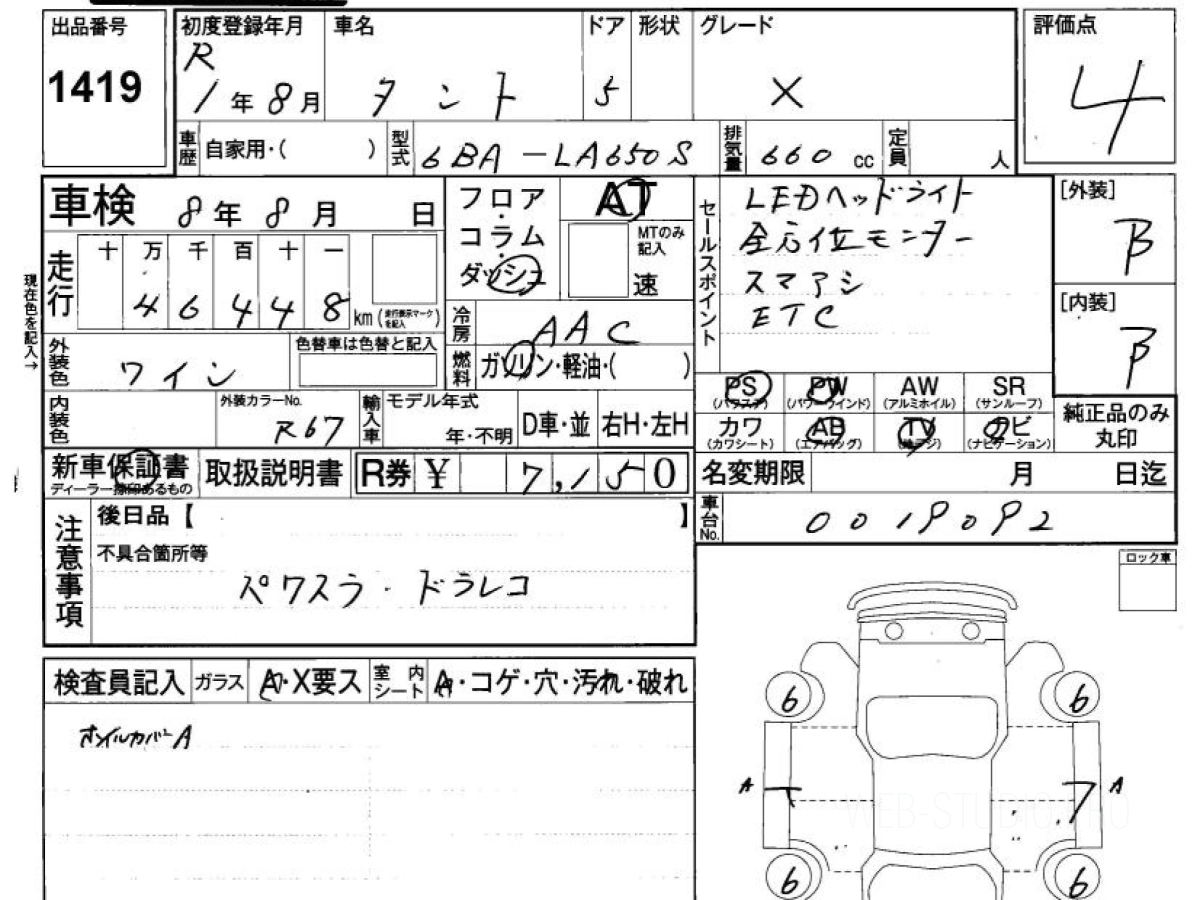 出品番号 初度登録年月 車名 ドア 形状 グレード 評価点
1419 R 1年8月 タント 5 X 4
車歴 自家用・( ) 型式 6BA-LA650S 排気量 660 cc 定員 人
車検 8年8月 日 フロア・コラム・ダッシュ AT セールスポイント LEDヘッドライト [外装]
走行 十 万 千 百 十 一 MTのみ記入 速 全方位モニター B
現在色を記入→ 4 6 4 4 8 km (走行表示マークを記入) スマアシ [内装]
冷房 AAC ETC B
外装色 ワイン 色替車は色替と記入 燃料 ガソリン・軽油・( )
PS (パワステ) PW (パワーウインド) AW (アルミホイル) SR (サンルーフ)
内装色 外装カラーNo. R67 輸入車 モデル年式 年・不明 D車・並 右H・左H
カワ (カワシート) AB (エアバッグ) TV (地デジ) ナビ (ナビゲーション) 純正品のみ丸印
新車保証書 ディーラー捺印あるもの 取扱説明書 R券 ¥ 7,150 名変期限 月 日迄
注意事項 後日品【 】 車台No. 0019092
不具合箇所等
ペワスラ・ドラレコ
ロック車
検査員記入 ガラス A・X要ス 室内シート A・コゲ・穴・汚れ・破れ
ホイルカバーA
6 6
A A
WEB-STUDIO.PRO
6 6